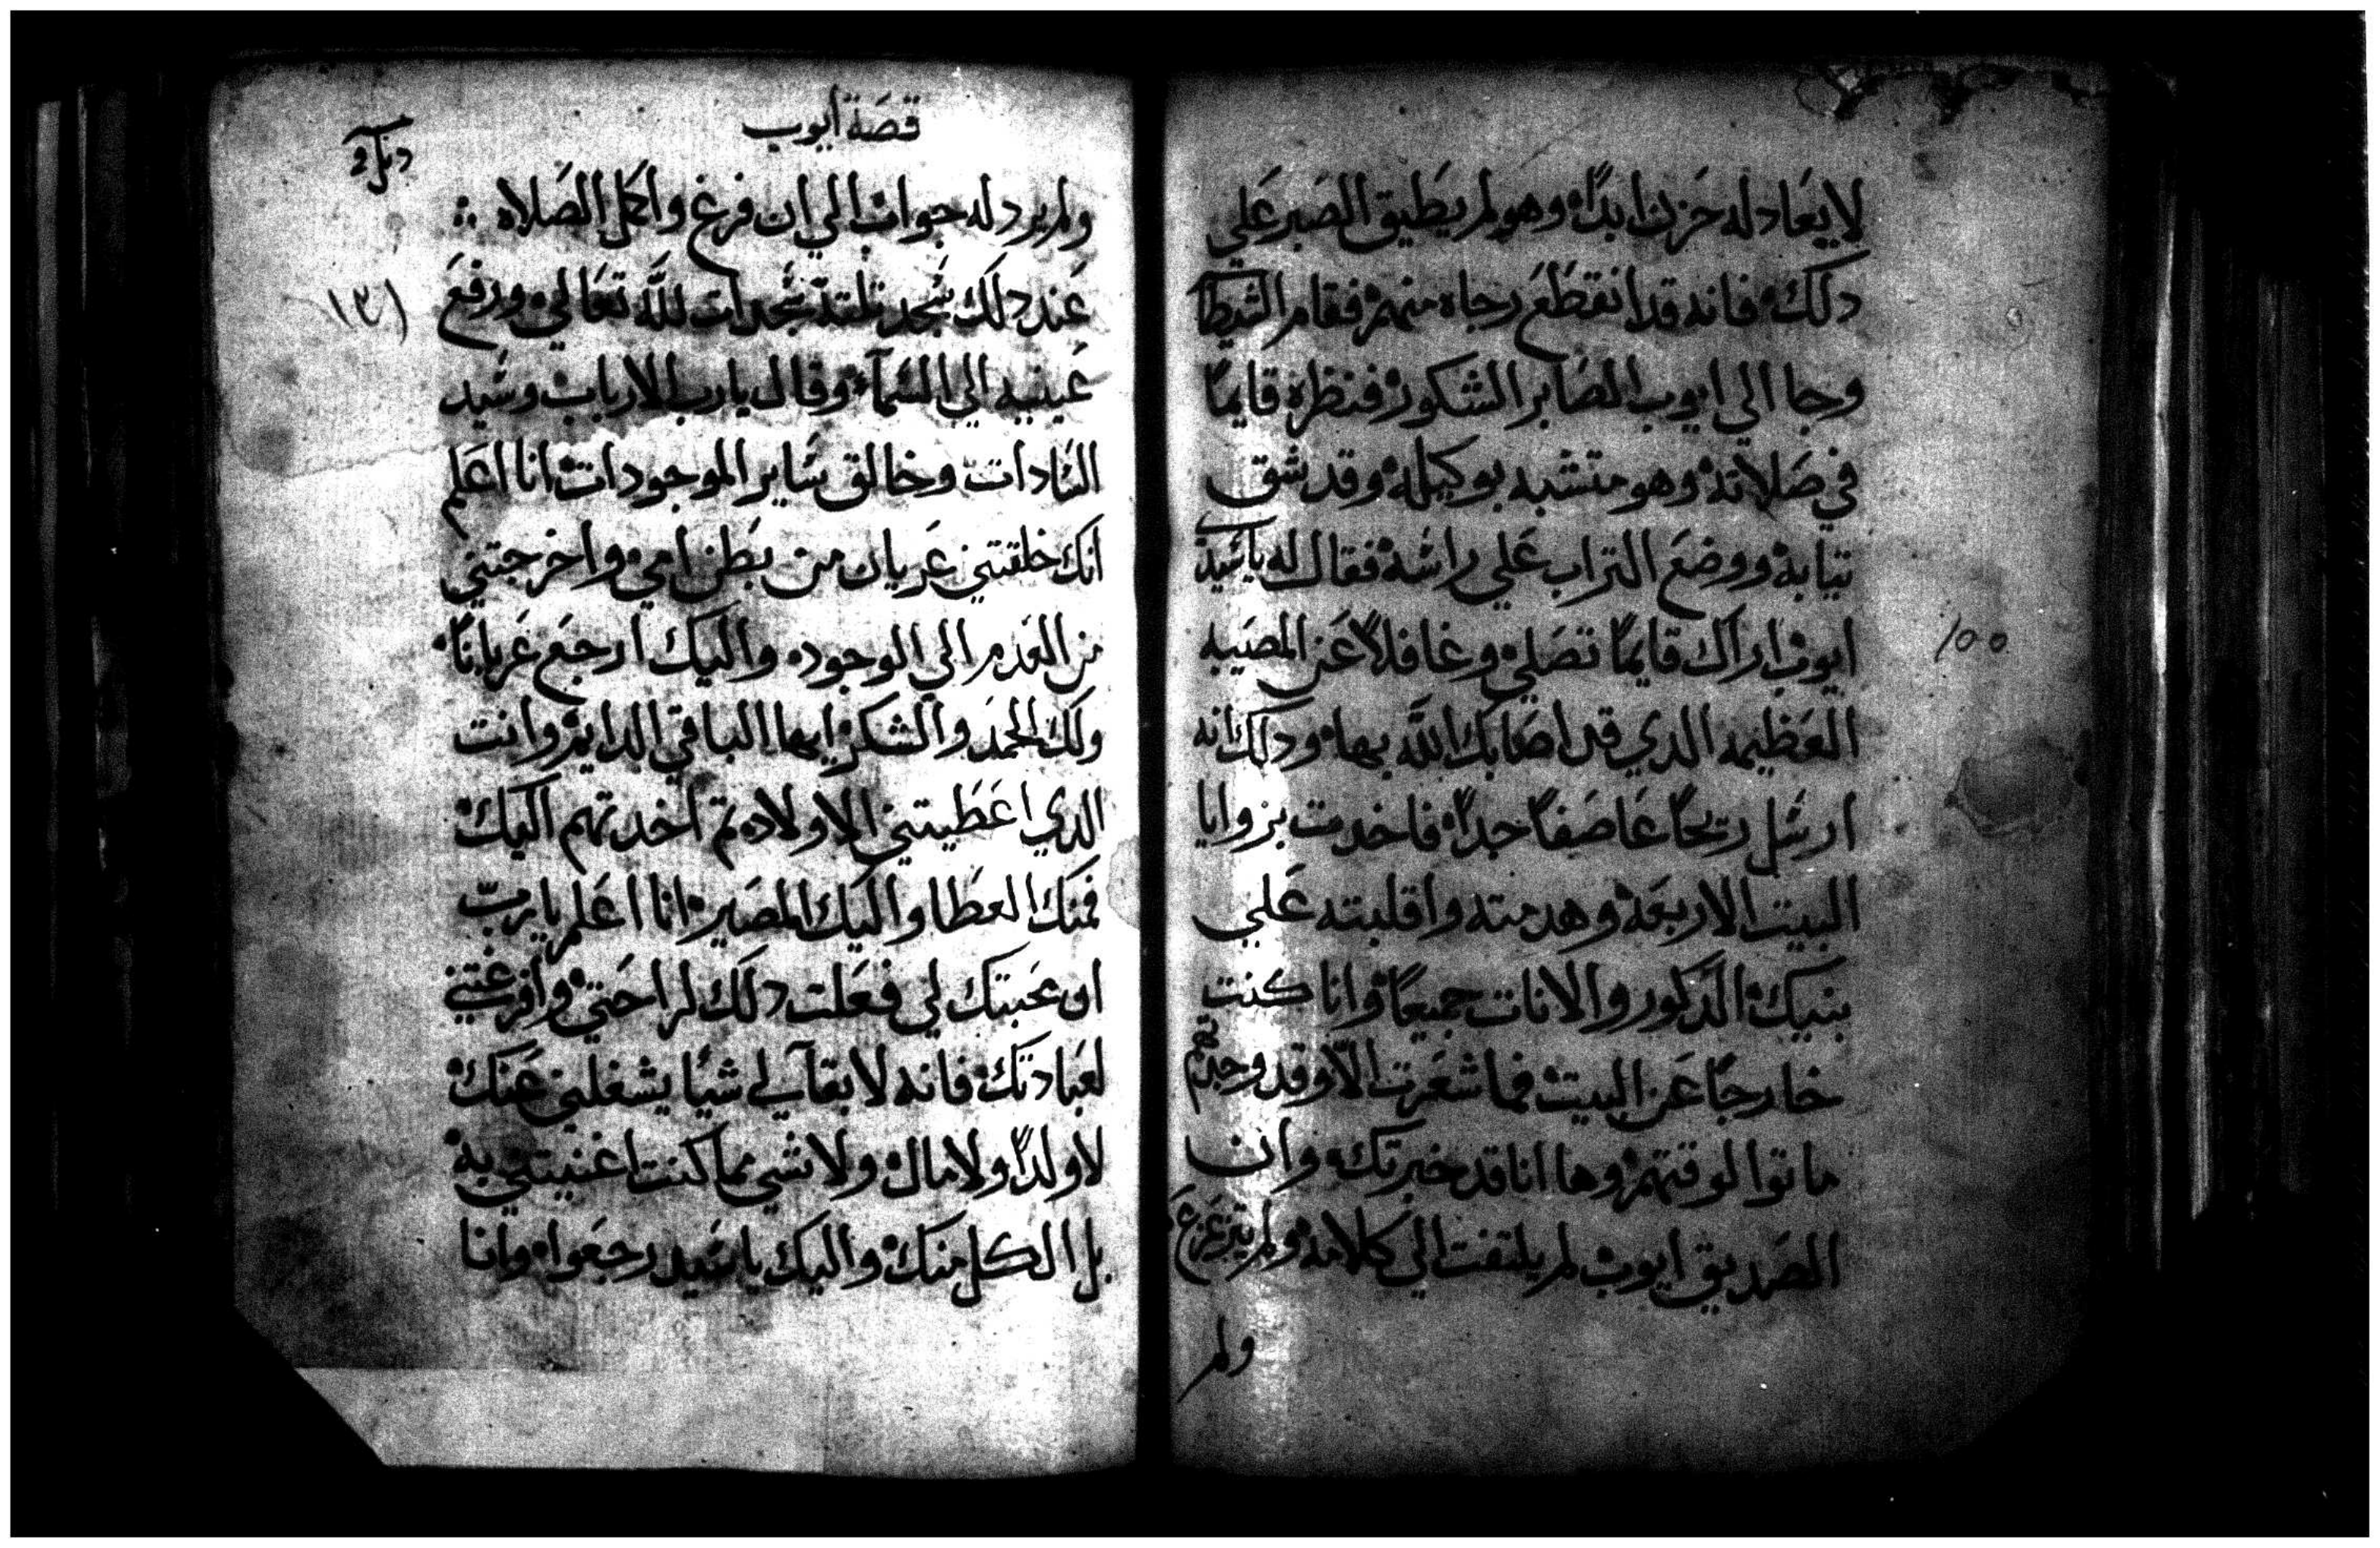 لا يعادله حزن ابدًا وهو لم يطيق الصبر علي
دلك فانه قد انقطع رجاه منهم فقام الشيطا
وجا الي ايوب الصابر الشكور فنظره قايمًا
في صلاته وهو متشبه بوكيله وقد شق
تيابه ووضع التراب علي راسه فقال له يا سيد
ايوب اراك قايمًا تصلي وغافلاً عن المصيبه
العظيمه الدي قد اصابك الله بها ودلك انه
ارسل ريحًا عاصفًا جدًا فاخدت بزوايا
البيت الاربعه وهدمته واقلبته علي
بنيك الدكور والانات جميعًا وانا كنت
خارجًا عن البيت فما شعرت الا وقد وجدتهم
ماتوا لوقتهم وها انا قد خبرتك وان
الصديق ايوب لم يلتفت الي كلامه ولم يتزعزع
ولم
100
قصة ايوب
ولم يرد له جواب الي ان فرغ واكمل الصلاه
عند دلك سجد تلتة سجدات لله تعالي ورفع
عينيه الي السمآء وقال يا رب الارباب وسيد
السادات وخالق ساير الموجودات انا اعلم
انك خلقتني عريان من بطن امي واخرجتني
من العدم الي الوجود واليك ارجع عريانًا
ولك الحمد والشكر ايها الباقي الدايم وانت
الدي اعطيتني الاولاد تم اخدتهم اليك
فمنك العطا واليك المصير انا اعلم يا رب
ان محبتك لي فعلت دلك لراحتي وافرغتني
لعبادتك فانه لا بقآ لي شيًا يشغلني عنك
لا ولدًا ولا مال ولا شي مما كنت اغنيتني به
بل الكل منك واليك يا سيد رجعوا وانا